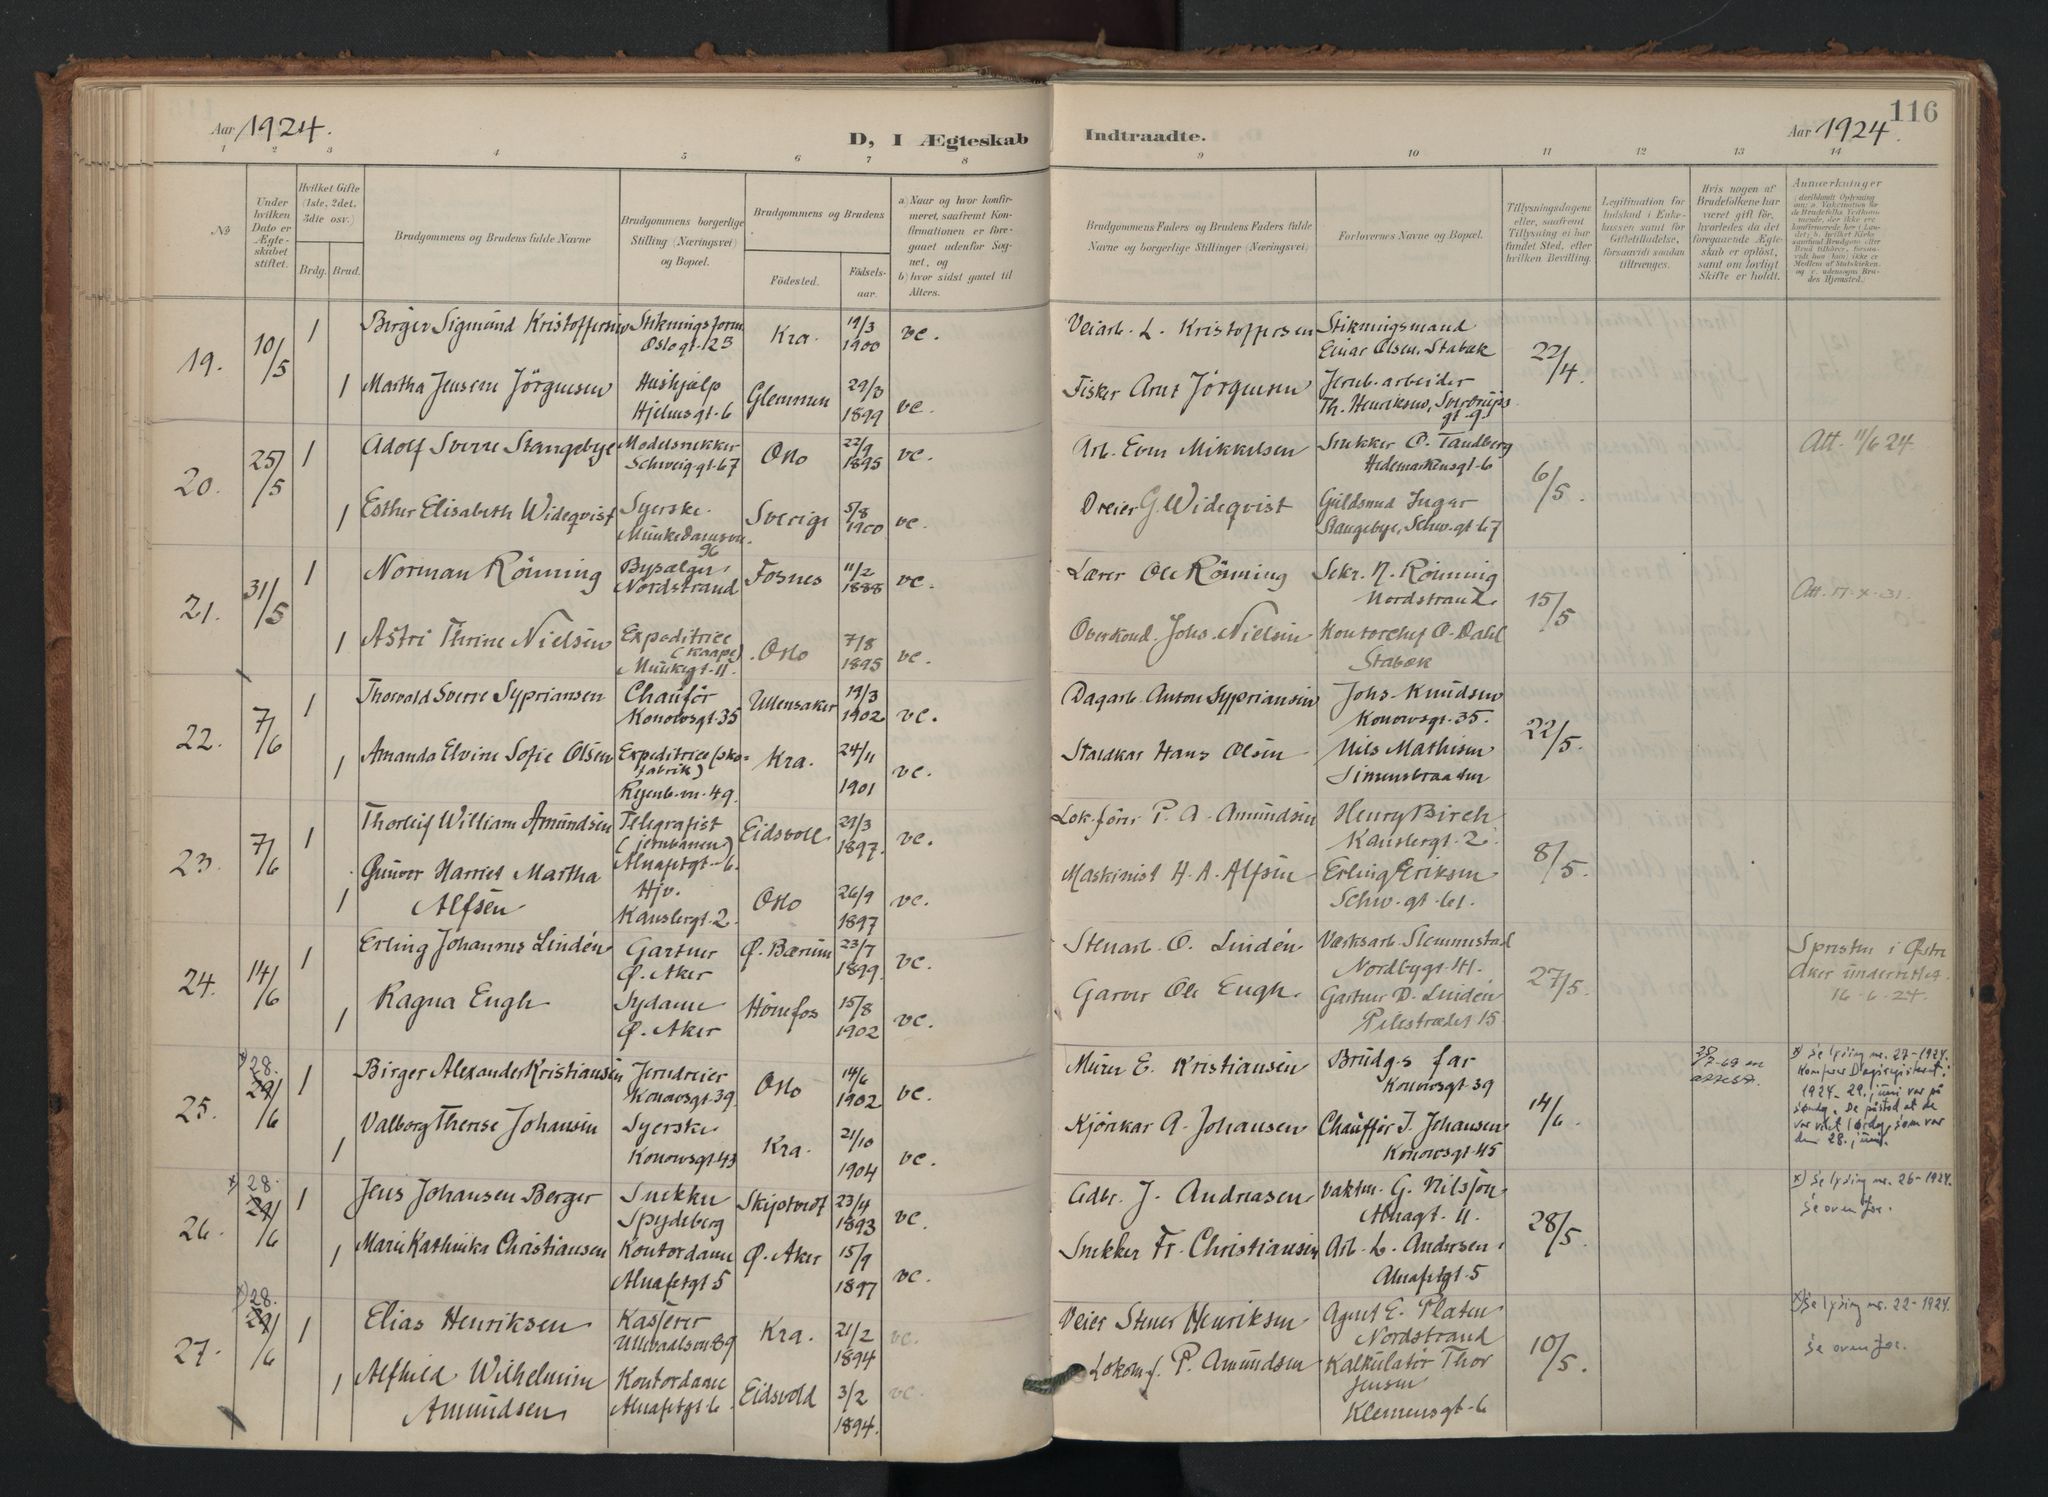 116
Aar 1924.
D, I Ægteskab Indtraadte.
Aar 1924.
1 2 3 4 5 6 7 8 9 10 11 12 13 14
No
Under hvilken Dato er Ægteskabet stiftet.
Hvilket Gifte (1ste, 2det, 3die osv.)
Brdg. Brud.
Brudgommens og Brudens fulde Navne
Brudgommens borgerlige Stilling (Næringsvei) og Bopæl.
Brudgommens og Brudens
Fødested.
Fødselsaar.
a) Naar og hvor konfirmeret, saafremt Konfirmationen er foregaaet udenfor Sognet, og
b) hvor sidst gaaet til Alters.
Brudgommens Faders og Brudens Faders fulde Navne og borgerlige Stillinger (Næringsvei)
Forlovernes Navne og Bopæl.
Tillysningsdagene eller, saafremt Tillysning ei har fundet Sted, efter hvilken Bevilling.
Legitimation for Indskud i Enkekassen samt for Giftetilladelse, forsaavidt saadan tiltrænges.
Hvis nogen af Brudefolkene har været gift før, hvorledes da det foregaaende Ægteskab er opløst, samt om lovligt Skifte er holdt.
Anmærkninger
19. 10/5 1 Birger Sigmund Kristoffersen Stikningsform. Oslogt. 23 Kra. 19/3 1900 vc. Veiarb. L. Kristoffersen Stikningsmand Einar Olsen, Stabæk 22/4
1 Martha Jensem Jörgensen Hushjælp Hjelmsgt. 6 Glemmen 29/3 1899 vc. Fisker Arnt Jörgensen Jernb. arbeider Th. Henriksen, Sverdrups gt. 9.
20. 25/5 1 Adolf Sverre Stangebye Modelsnekker Schweig. gt. 67 Oslo 22/9 1895 vc. Arb. Even Mikkelsen Snekker O. Tandberg Hedemarkensgt. 6 6/5 Att. 11/6 24.
1 Esther Elisabeth Wideqvist Syerske. Munkedamsvn. 96 Sverige 5/8 1900 vc. Dreier G. Wideqvist Guldsmed Inger Stangebye, Schw. gt. 67
21. 31/5 1 Norman Rönning Bysælger, Nordstrand Fosnes 11/2 1888 vc. Lærer Ole Rönning Sekr. N. Rönning Nordstrand. 15/5 Att. 17. x. 31.
1 Astri Thrine Nielsen Expeditrice (kaape) Munkegt. 11. Oslo 7/8 1895 vc. Overkond. Johs. Nielsen Kontorchef O. Dahl Stabæk
22. 7/6 1 Thorvald Sverre Sypriansen Chauför Konowsgt. 35 Ullensaker 19/3 1902 vc. Dagarb. Anton Sypriansen Johs. Knudsen Konowsgt. 35. 22/5.
1 Amanda Elvine Sofie Olsen Expeditrice (skofabrik) Ryenb. vn. 49. Kra. 24/11 1901 vc. Staldkar Hans Olsen Nils Mathisen Simenstraaten
23. 7/6 1 Thorleif William Amundsen Telegrafist (jernbanen) Alnafetgt. 6. Eidsvoll 29/3 1897. vc. Lok. förer P. A. Amundsen Henry Birch Kanslergt. 2 8/5.
1 Gunver Harriet Martha Alfsen Hjv. Kanslergt. 2 Oslo 26/9 1897 vc. Maskinist H. A. Alfsen Erling Eriksen Schw. gt. 61.
24. 14/6 1 Erling Johannes Lindén Gartner Ø. Aker Ø. Bærum 23/7 1899. vc. Stenarb. O. Lindén Værksarb. Slemmestad Nordbygt. 41. 27/5. Spresten i Østre Aker underrettet 16. 6. 24.
1 Ragna Engh Sydame Ø. Aker Hönefos 15/8 1902 vc. Garver Ole Engh. Gartner D. Lindén Pilestrædet 15
25. x) 28. 29/6 1 Birger Alexander Kristiansen Jerndreier Konowsgt. 39. Oslo 14/6 1902 vc. Murer E. Kristiansen Brudg.s far Konowsgt. 39 14/6 x) Se lysing nr. 27-1924. 1924. 29. juni var på søndg. De påstod at de var viet lørdg, som var den 28. juni.
1 Valborg Therese Johansen Syerske Konowsgt. 43 Kra. 21/10 1904 vc. Kjörekar A. Johansen Chaufför J. Johansen Konowsgt. 45
26. x) 28. 29/6 1 Jens Johansen Berger Snekker Spydeberg Skiptvedt 23/4 1893 vc. Gdbr. J. Andreasen Vaktm. G. Nilssön Alnagt. 11. 28/5. x) Se lysing nr. 26-1924. Se ovenfor.
1 Marie Kathinka Christiansen Kontordame Alnafetgt 5 Ø. Aker 15/9 1897 vc. Snekker Fr. Christiansen Arb. L. Andersen, Alnafetgt. 5
27. x) 28. 29/6 1 Elias Henriksen Kasserer Ullevaalsvn 89 Kra. 21/2 1894 vc. Veier Stener Henriksen Agent E. Platen Nordstrand 10/5. x) Se lysing nr. 22-1924. Se ovenfor.
1 Alfhild Wilhelmine Amundsen Kontordame Alnafetgt 6 Eidsvold 3/2 1894. vc. Lokom. f. P. Amundsen Kalkulatør Thor Jensen Klemensgt. 6